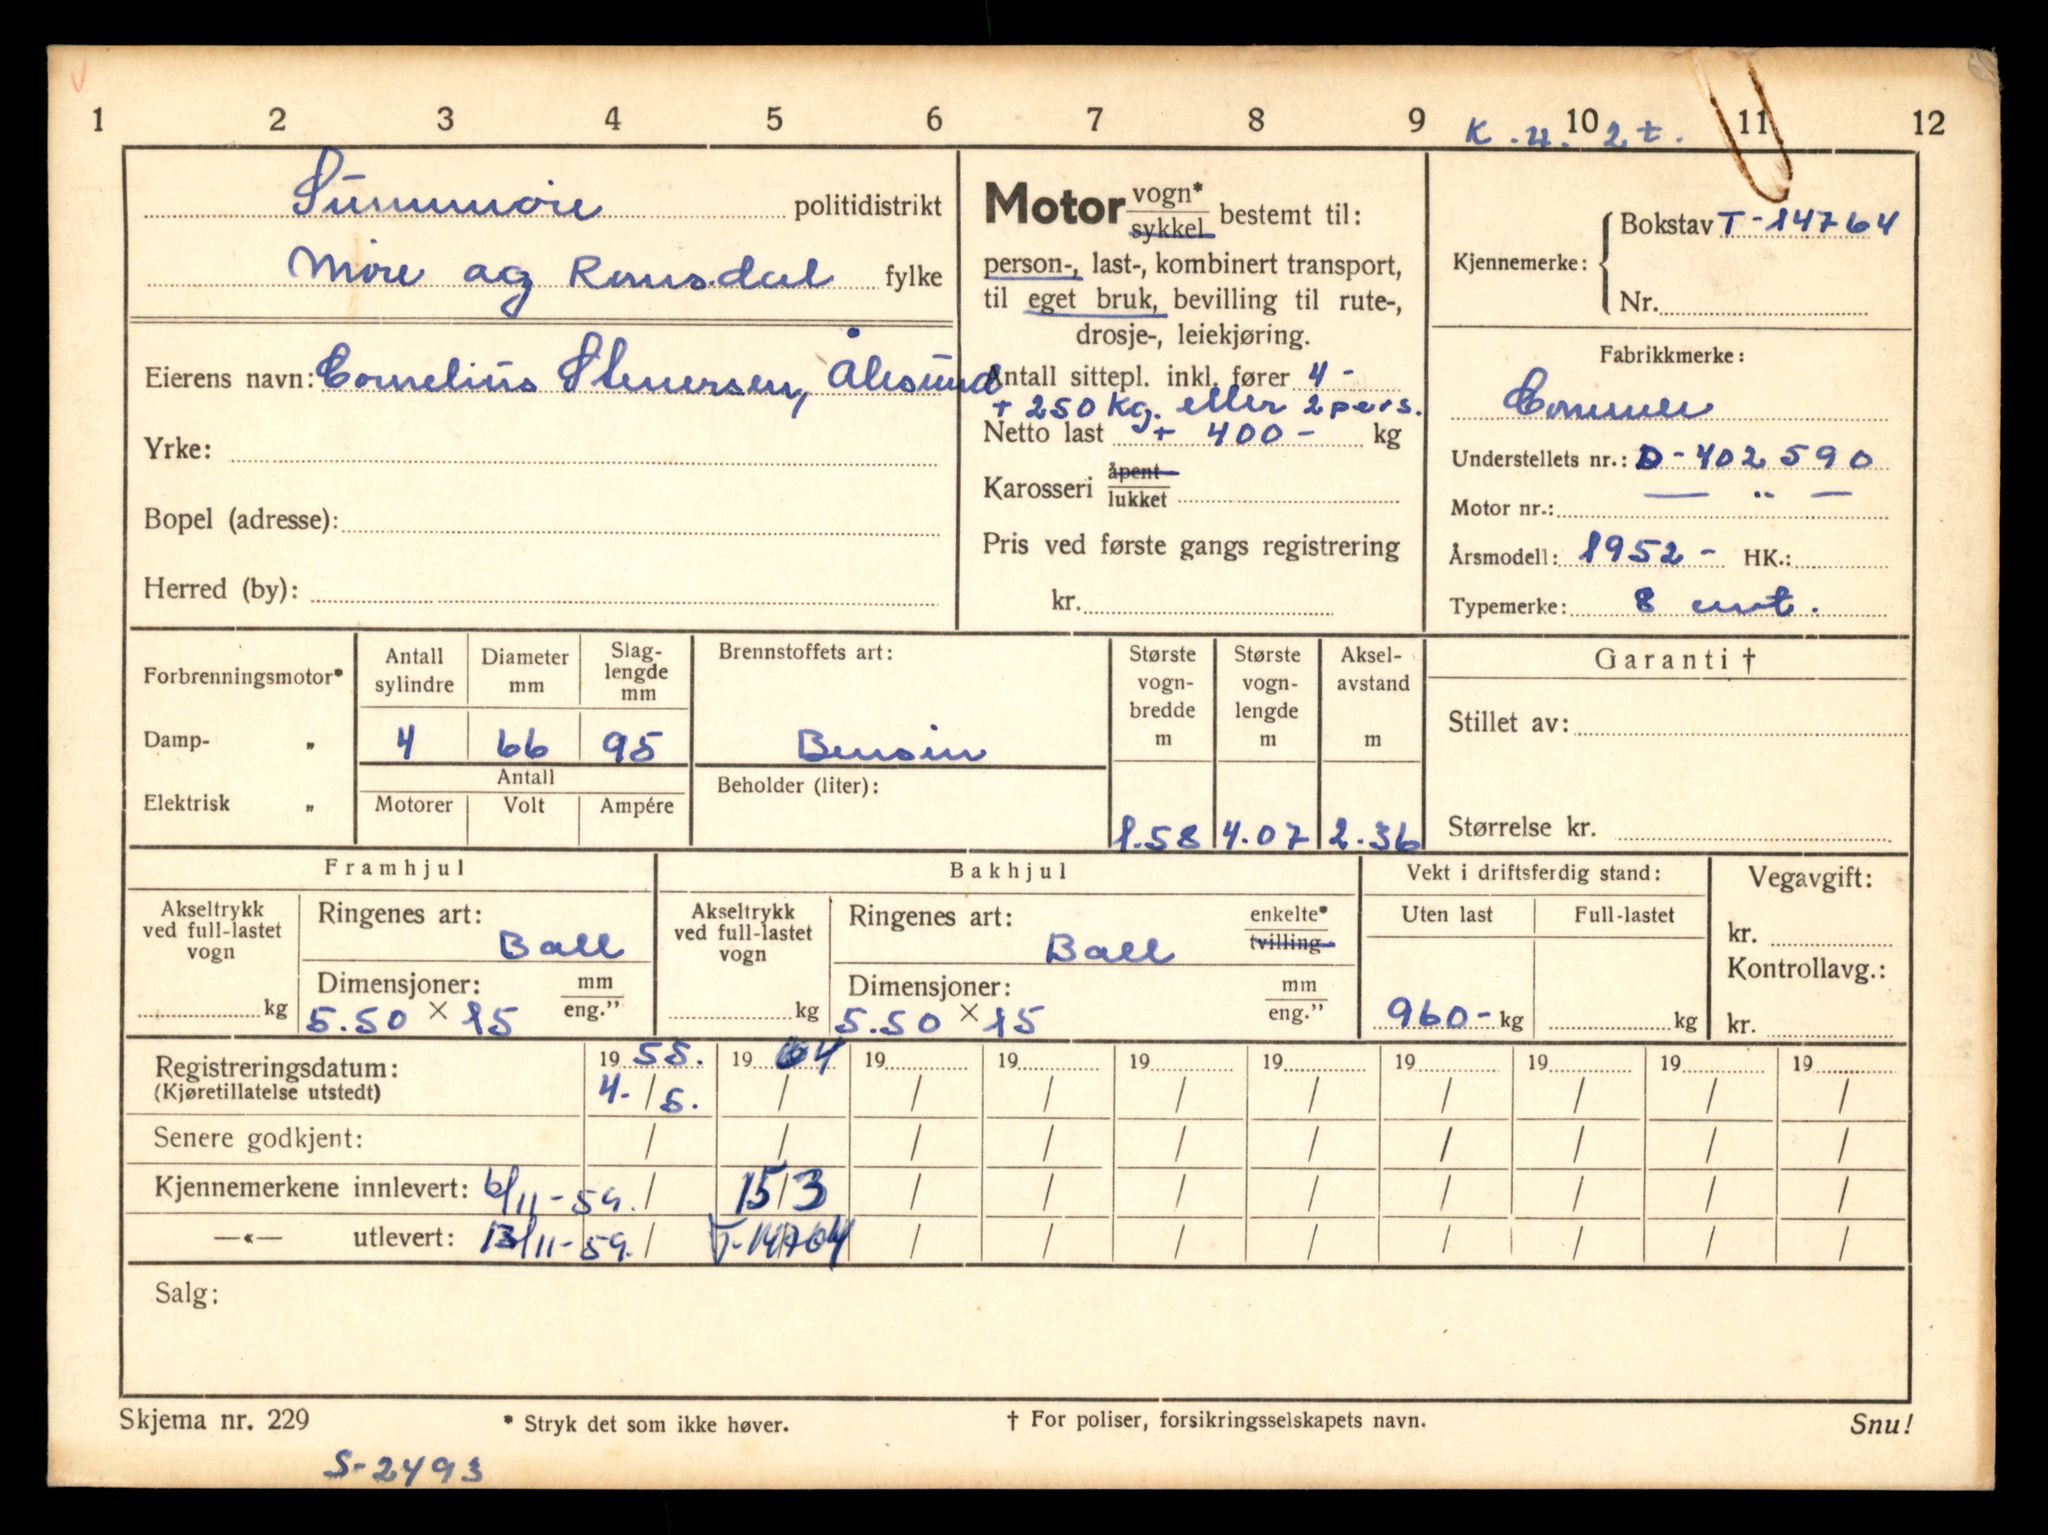 1 2 3 4 5 6 7 8 9 10 11 12
K.4. 2t.
Sunnmøre politidistrikt
Møre og Romsdal fylke
Eierens navn: Cornelius Stenersen, Ålesund
Yrke:
Bopel (adresse):
Herred (by):
Motor vogn* sykkel bestemt til:
person-, last-, kombinert transport,
til eget bruk, bevilling til rute-,
drosje-, leiekjøring.
Antall sittepl. inkl. fører 4 -
+ 250 kg. eller 2 pers.
Netto last + 400 - kg
Karosseri åpent lukket
Pris ved første gangs registrering
kr.
Kjennemerke: Bokstav T-14764
Nr.
Fabrikkmerke:
Commer
Understellets nr.: D-402590
Motor nr.: — " —
Årsmodell: 1952 - HK.:
Typemerke: 8 cwt.
Forbrenningsmotor*
Damp- „
Elektrisk „
Antall sylindre
4
Diameter mm
66
Slag-
lengde
mm
95
Antall
Motorer Volt Ampére
Brennstoffets art:
Bensin
Beholder (liter):
Største
vogn-
bredde
m
1.58
Største
vogn-
lengde
m
4.07
Aksel-
avstand
m
2.36
Garanti †
Stillet av:
Størrelse kr.
Framhjul
Akseltrykk
ved full-lastet
vogn
kg
Ringenes art:
Ball
Dimensjoner: mm eng."
5.50 × 15
Bakhjul
Akseltrykk
ved full-lastet
vogn
kg
Ringenes art: enkelte* tvilling
Ball
Dimensjoner: mm eng."
5.50 × 15
Vekt i driftsferdig stand:
Uten last Full-lastet
960 - kg kg
Vegavgift:
kr.
Kontrollavg.:
kr.
Registreringsdatum: 19 55. 19 64 19 19 19 19 19 19 19 19
(Kjøretillatelse utstedt) 4. / 5. / / / / / / / / /
Senere godkjent: / / / / / / / / / /
Kjennemerkene innlevert: 6/11-59. / 15/3 / / / / / / / /
—«— utlevert: 13/11-59. / T-14764 / / / / / / / /
Salg:
Skjema nr. 229 * Stryk det som ikke høver. † For poliser, forsikringsselskapets navn. Snu!
S-2493